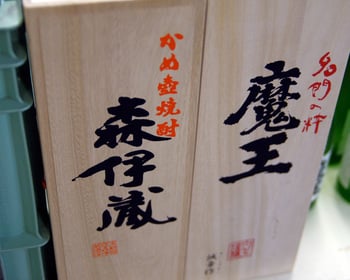 かめ壺焼酎
森伊蔵
名門の粋
魔王